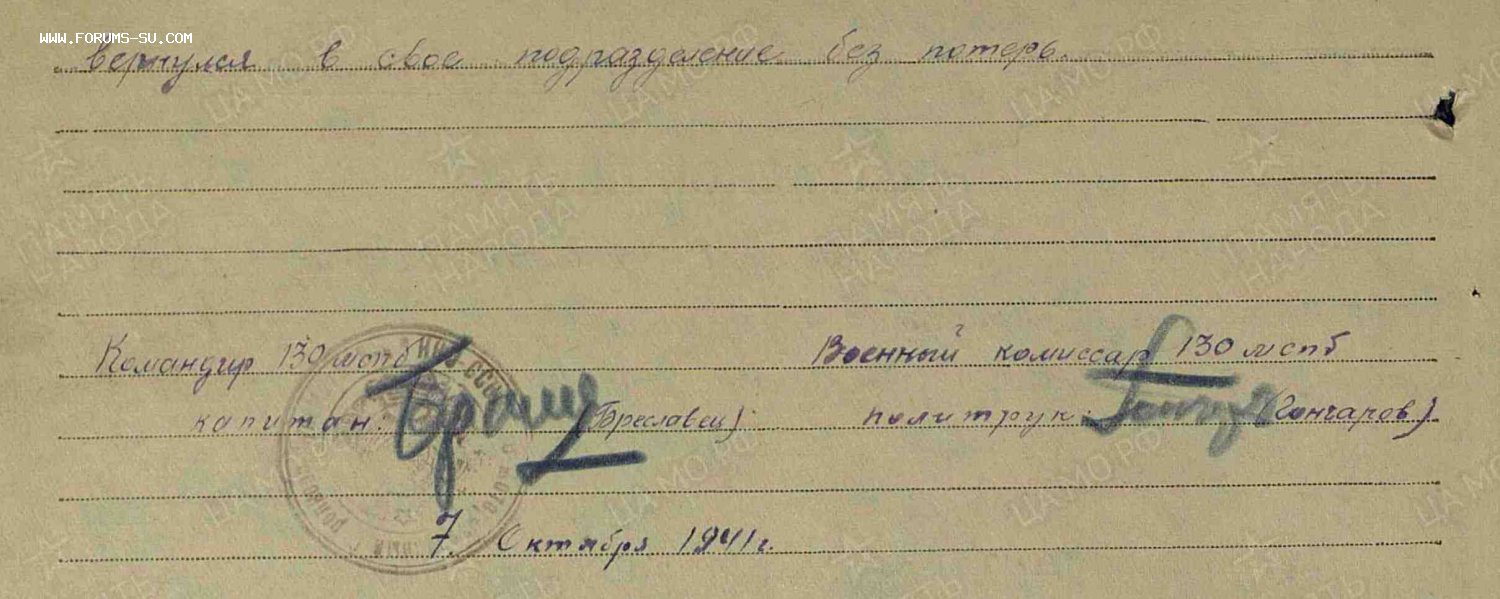 www.forums-su.com
вернулся в свое подразделение без потерь.
Командир 130 мспб Военный комиссар 130 мспб
капитан: (Береславец) политрук: (Гончаров)
7 Октября 1941 г.
ПАМЯТЬ НАРОДА
ЦАМО.РФ